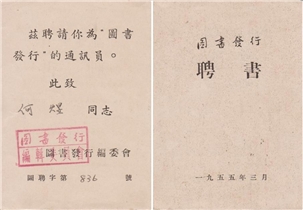 茲聘請你為“圖書
發行”的通訊員。
此致
何煜 同志
圖書發行
圖書發行編委會
圖聘字第836號
图書發行
聘書
一九五五年三月